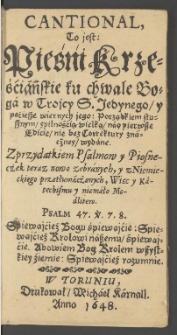 CANTIONAL,
To jest:
Pieśni Krze-
ściáńskie ku chwale Bo-
gá w Trojcy S. Jedynego/ y
poćiesze wiernych jego: Porządkiem słu-
sznym/ z pilnośćią wielką/ nád pierwsze
Edicie/ nie bez Correktury zna-
czney/ wydáne.
Z przydatkiem Psalmow y Piosne-
czek teraz nowo zebránych, y z Niemie-
ckiego przetłumáczonych, Więc y Ká-
techismu y niemáło Mo-
dlitew.
PSALM 47. v. 7. 8.
Spiewajcież Bogu spiewajcie: Spie-
wajcież Krolowi nászemu/ spiewaj-
cie. Abowiem Bog Krolem wszyst-
kiey źiemie: Spiewajcież rozumnie.
W TORUNIU,
Drukował/ Micháel Kárnall.
Anno 1648.